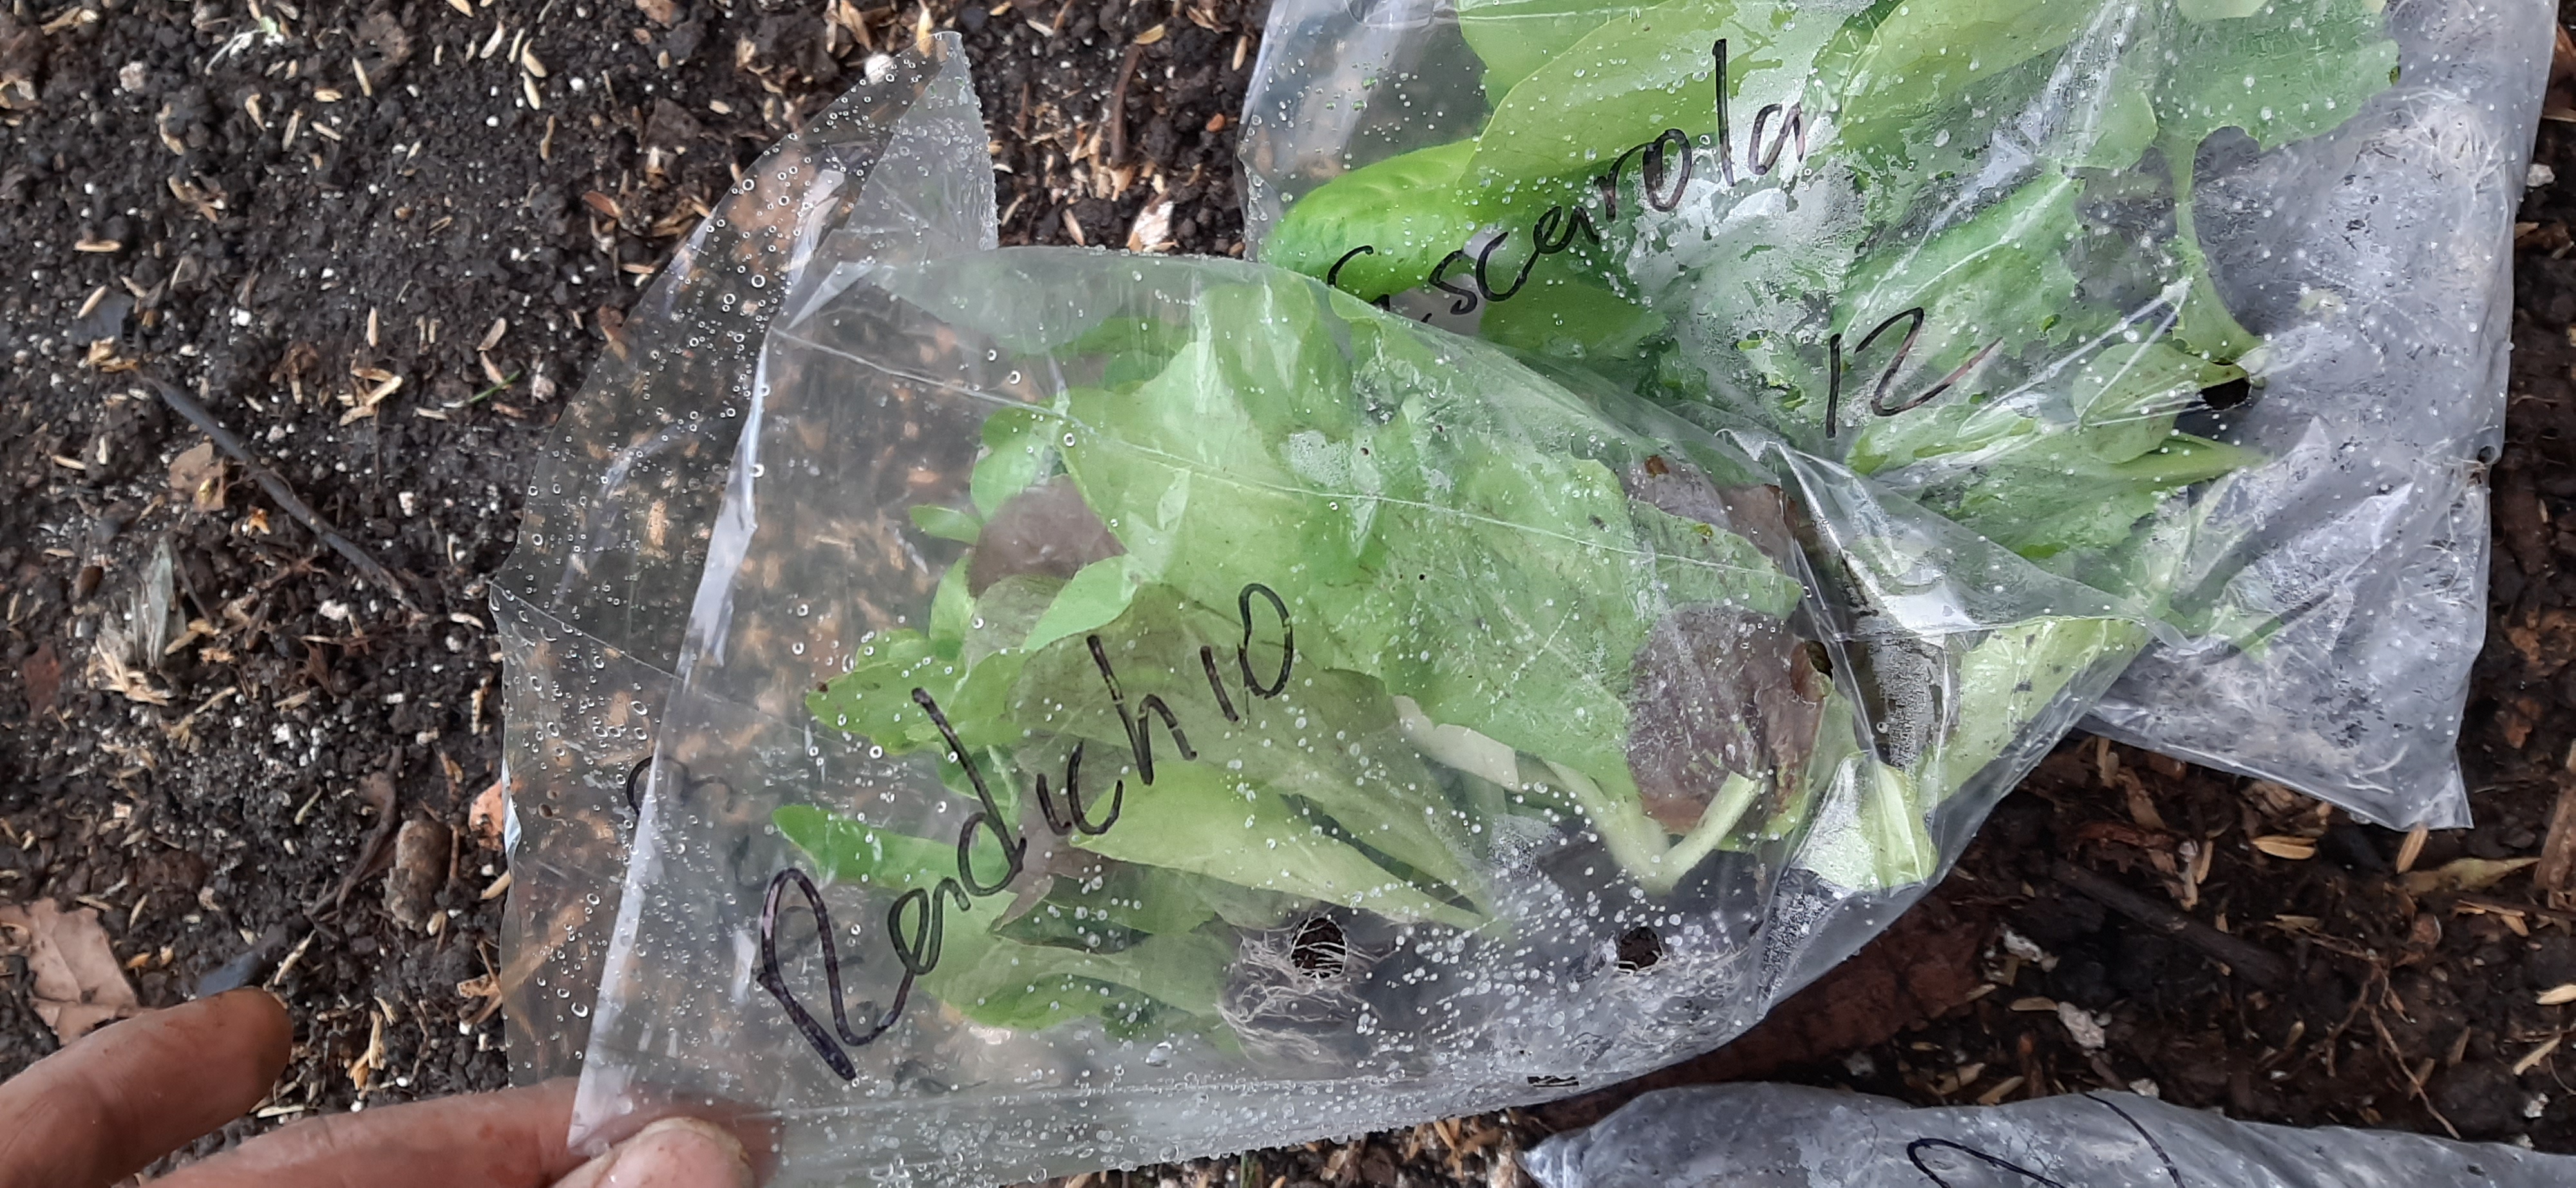 Escarola
12
Rendichio